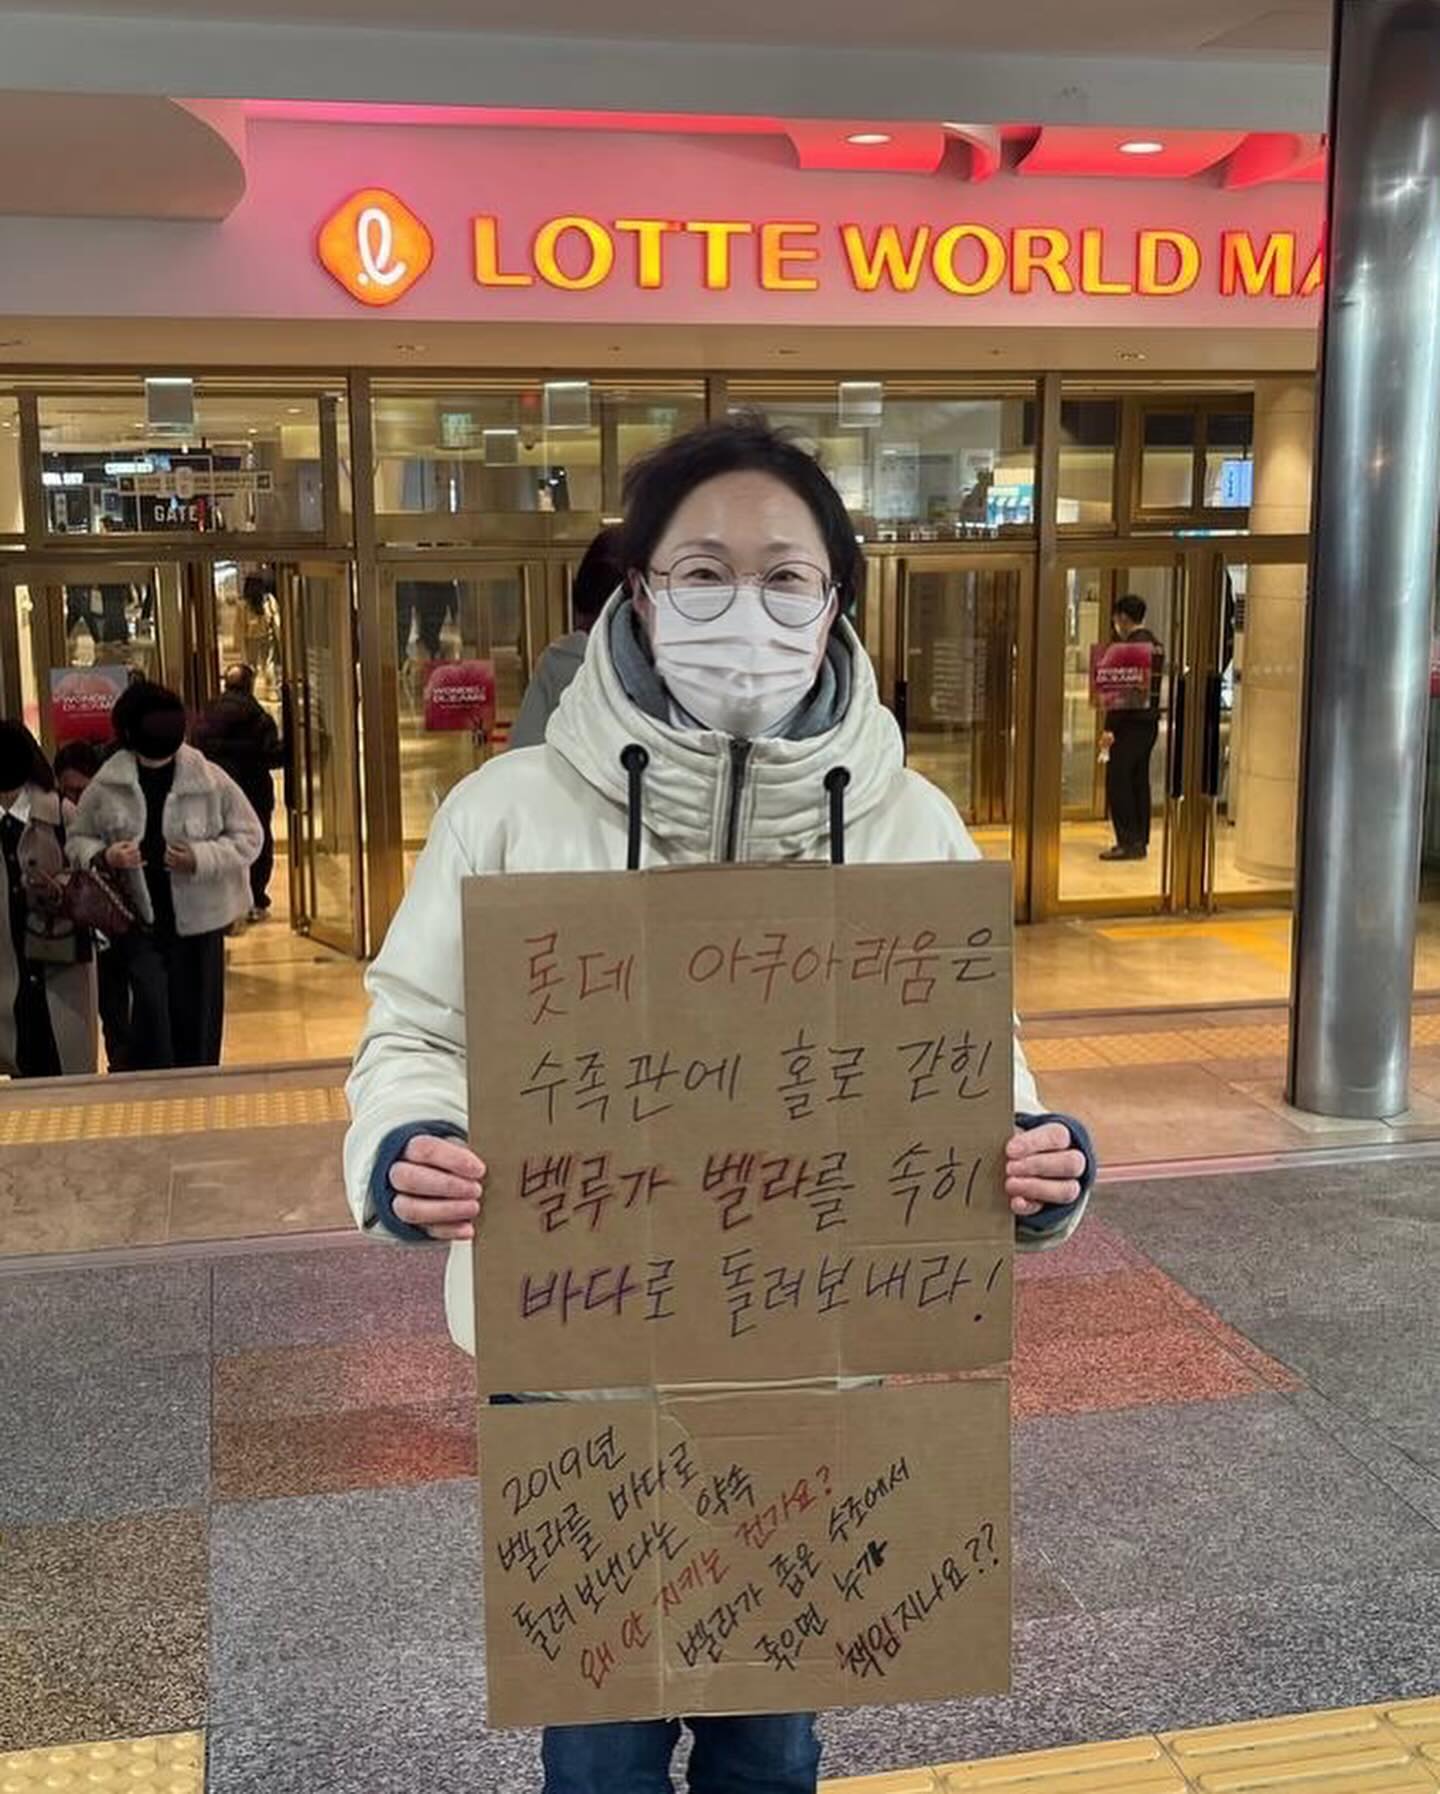 LOTTE WORLD MA
GATE
WONDER
DREAMS
롯데 아쿠아리움은
수족관에 홀로 갇힌
벨루가 벨라를 속히
바다로 돌려보내라!
2019년
벨라를 바다로
돌려보낸다는 약속
왜 안 지키는 건가요?
벨라가 좁은 수조에서
죽으면 누가
책임지나요??